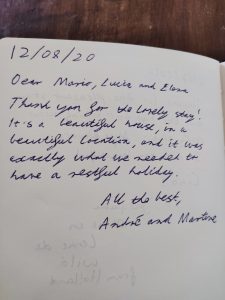 12/08/20
Dear Mario, Lucia and Elena
Thank you for the lovely stay!
It is a beautiful house, in a
beautiful location, and it was
exactly what we needed to
have a restful holiday.
All the best,
André and